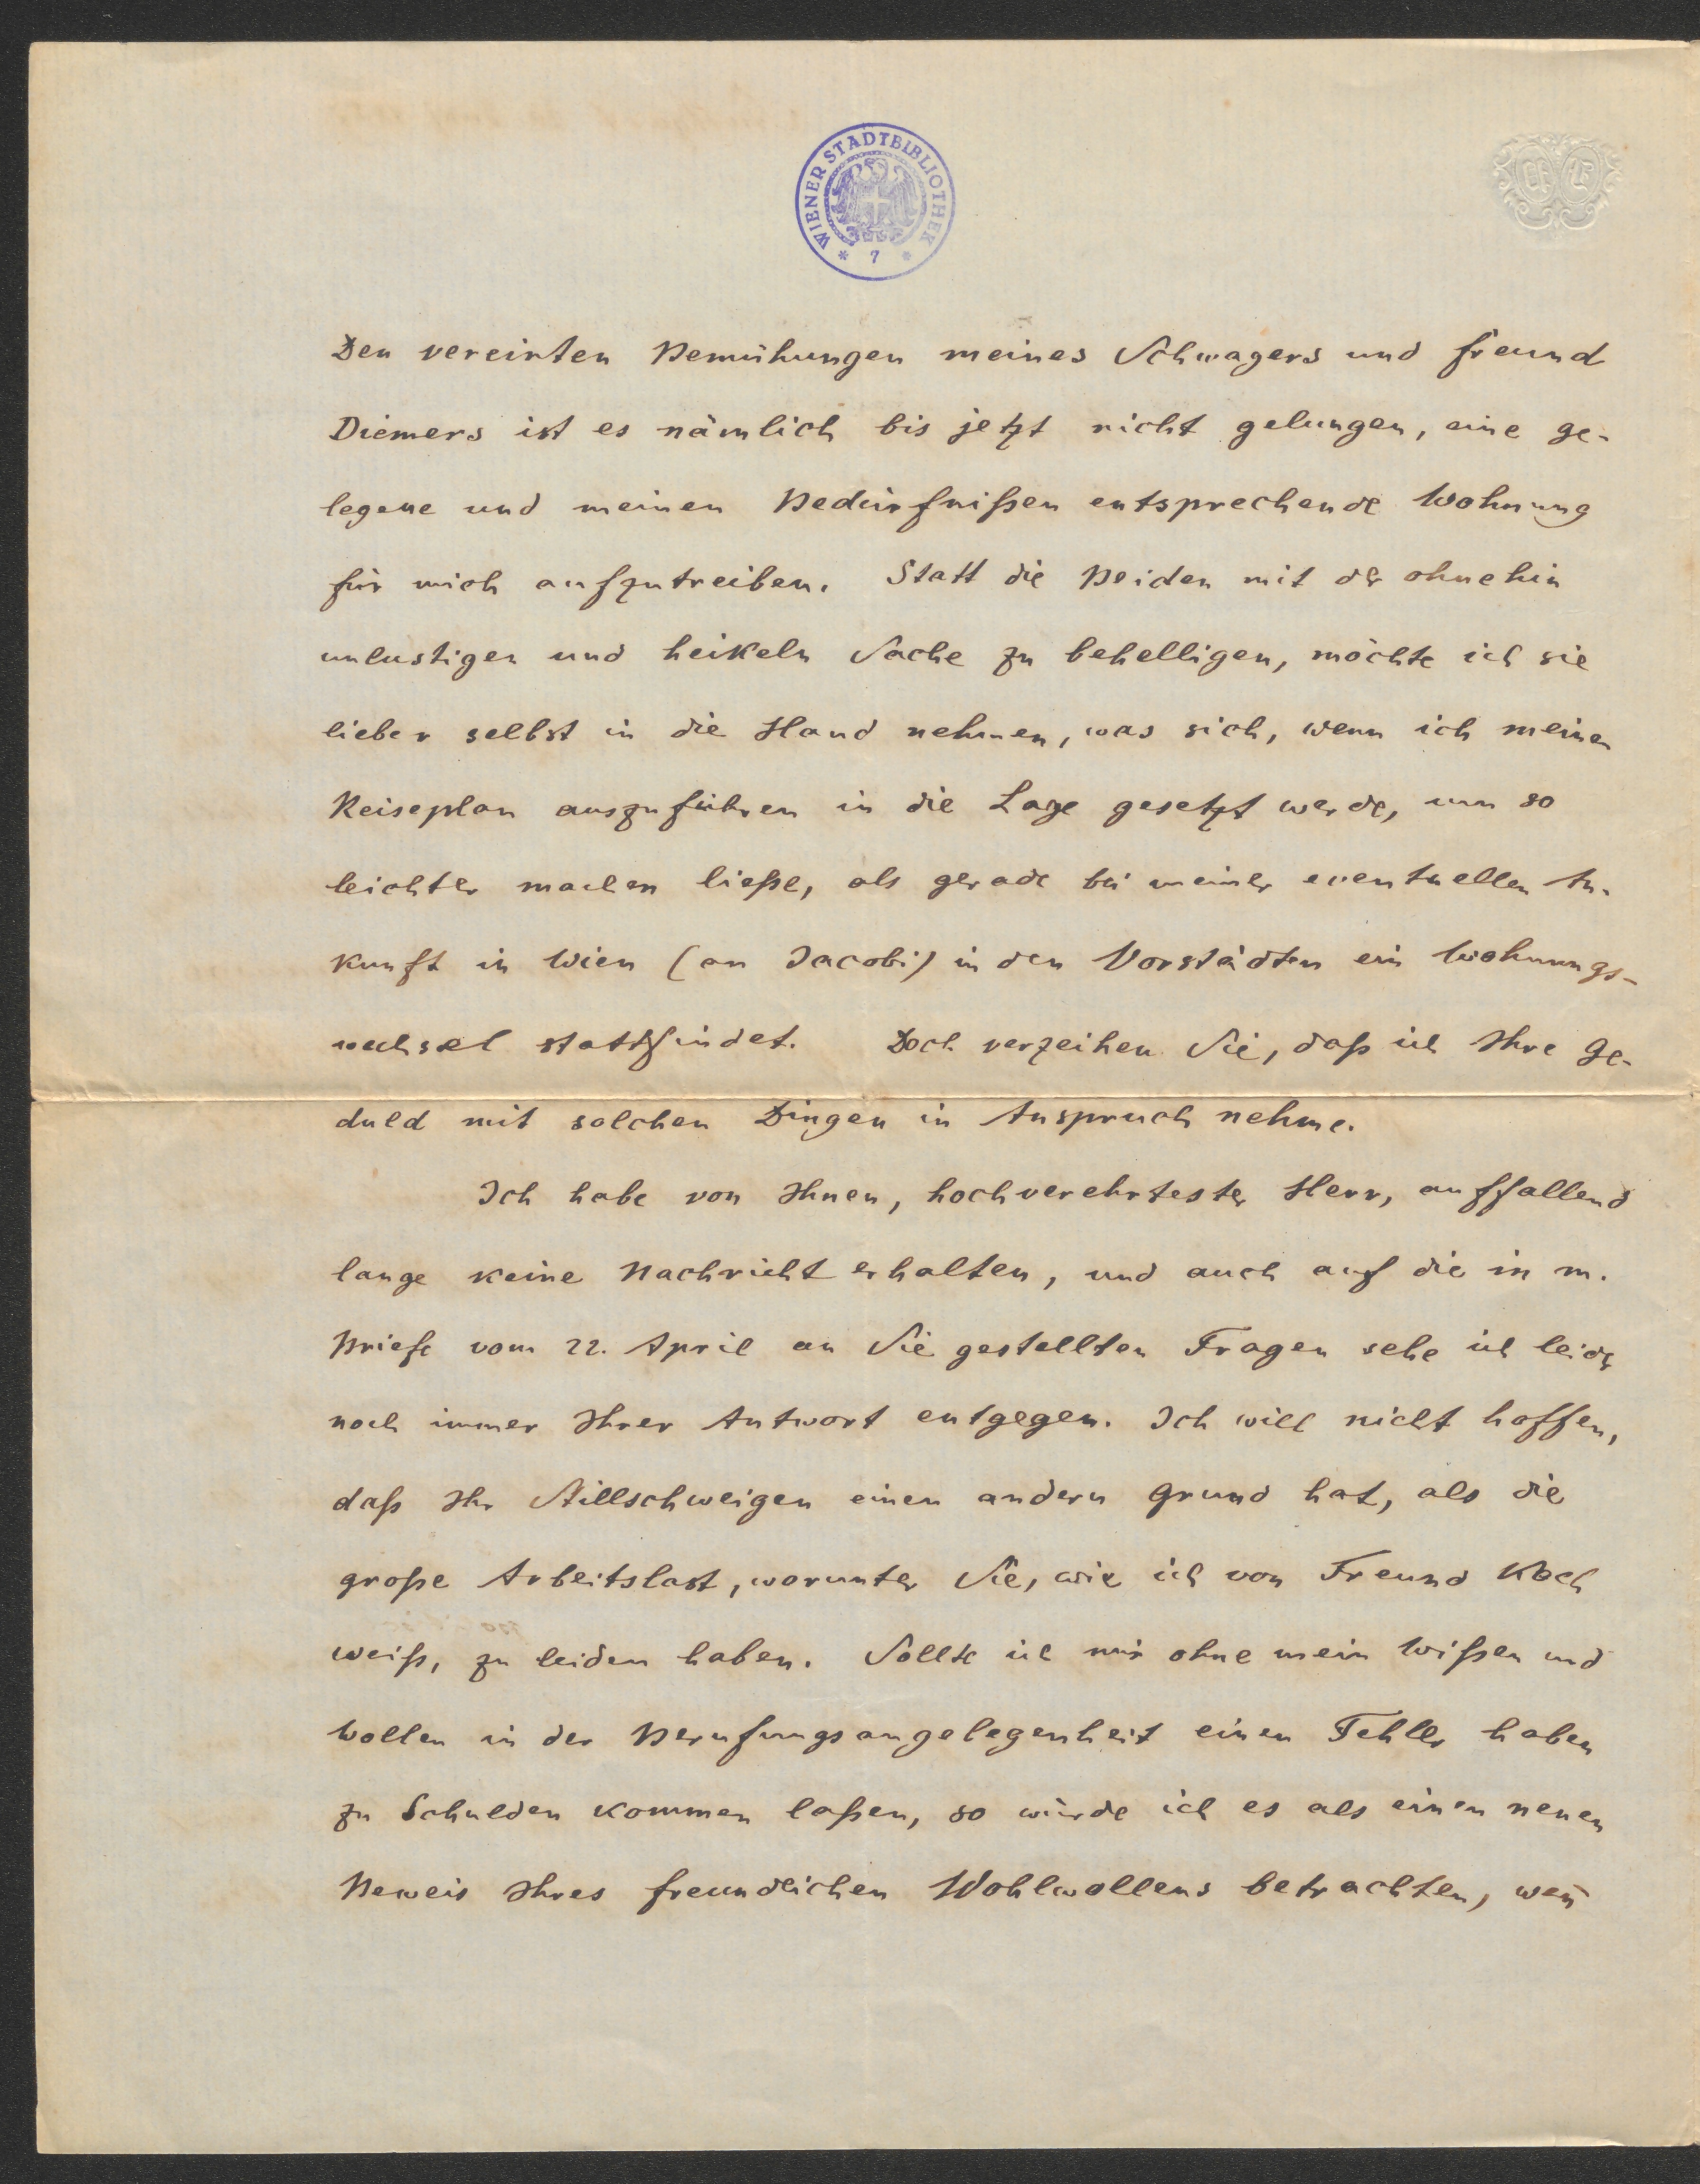 WIENER STADTBIBLIOTHEK
* 7 *
Den vereinten Bemühungen meines Schwagers und freund
Diemers ist es nämlich bis jetzt nicht gelungen, eine ge-
legene und meinen Bedürfnißen entsprechende Wohnung
für mich aufzutreiben. Statt die Beiden mit der ohnehin
unlustigen und heikeln Sache zu behelligen, möchte ich sie
lieber selbst in die Hand nehmen, was sich, wenn ich meinen
Reiseplan auszuführen in die Lage gesetzt werde, um so
leichter machen ließe, als gerade bei meiner eventuellen An-
kunft in Wien (an Jacobi) in den Vorstädten ein Wohnungs-
wechsel stattfindet. Doch verzeihen Sie, daß ich Ihre Ge-
duld mit solchen Dingen in Anspruch nehme.
Ich habe von Ihnen, hochverehrtester Herr, auffallend
lange keine Nachricht erhalten, und auch auf die in m.
Briefe vom 22. April an Sie gestellten Fragen sehe ich leider
noch immer Ihrer Antwort entgegen. Ich will nicht hoffen,
daß Ihr Stillschweigen einen andern Grund hat, als die
große Arbeitslast, worunter Sie, wie ich von Freund Koch
weiß, zu leiden haben. Sollte ich mir ohne mein Wißen und
Wollen in der Berufungsangelegenheit einen Fehler haben
zu Schulden kommen laßen, so würde ich es als einen neuen
Beweis Ihres freundlichen Wohlwollens betrachten, weñ